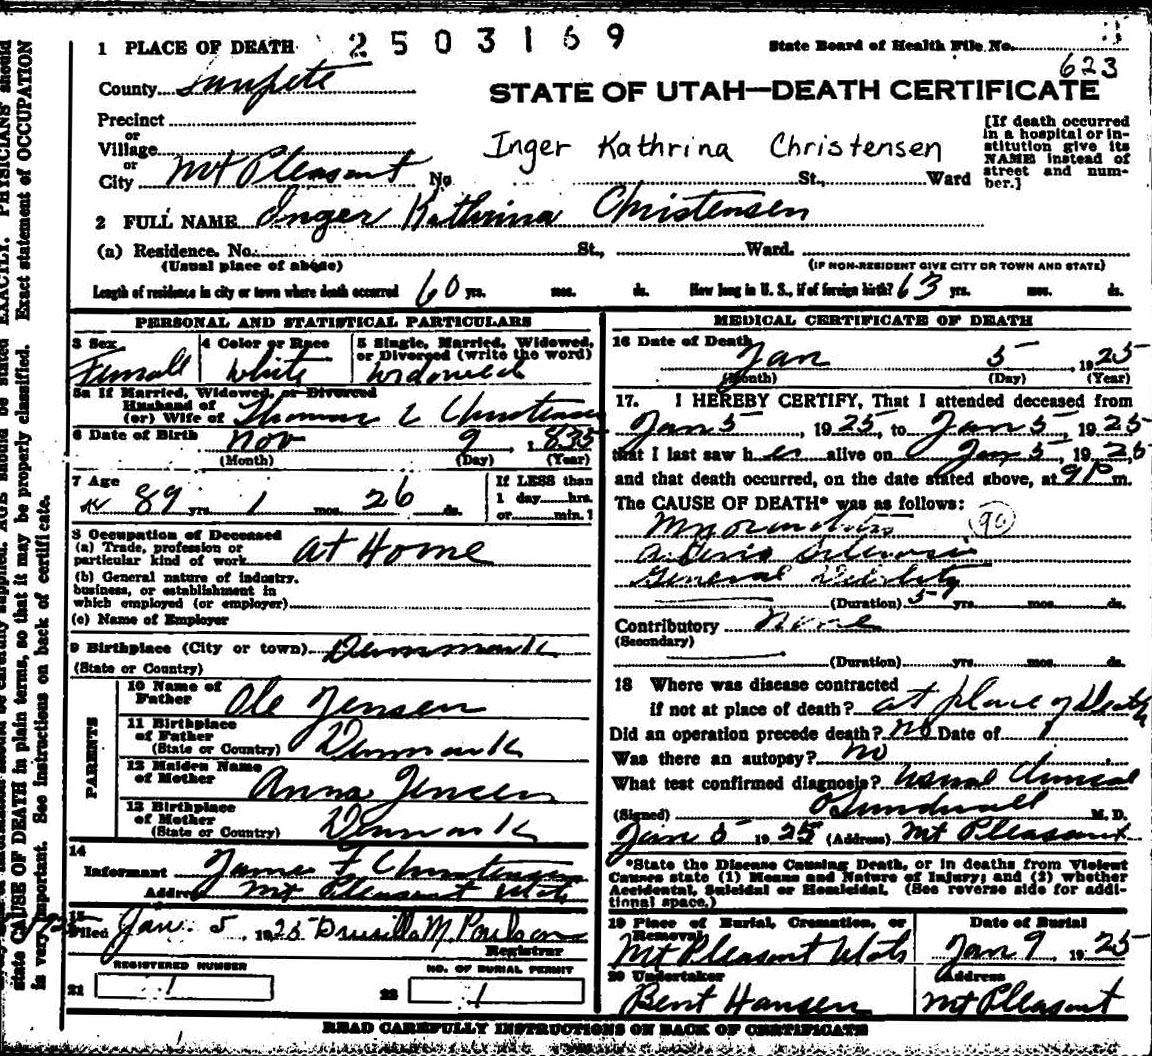 1 PLACE OF DEATH 2503169 State Board of Health File No. 3
County Sanpete 623
STATE OF UTAH—DEATH CERTIFICATE
Precinct
or
Village
or
City Mt Pleasant No. St., Ward
Inger Kathrina Christensen
[If death occurred
in a hospital or in-
stitution give its
NAME instead of
street and num-
ber.]
2 FULL NAME Inger Kathrina Christensen
(a) Residence. No. St., Ward.
(Usual place of abode) (IF NON-RESIDENT GIVE CITY OR TOWN AND STATE)
Length of residence in city or town where death occurred 60 yrs. mos. ds. How long in U. S., if of foreign birth? 63 yrs. mos. ds.
PERSONAL AND STATISTICAL PARTICULARS
3 Sex
Female
4 Color or Race
White
5 Single, Married, Widowed,
or Divorced (write the word)
widowed
5a If Married, Widowed, or Divorced
Husband of
(or) Wife of Thomas C Christensen
6 Date of Birth Nov 9, 1835
(Month) (Day) (Year)
7 Age
89 yrs. 1 mos. 26 ds.
If LESS than
1 day hrs.
or min.]
8 Occupation of Deceased
(a) Trade, profession or
particular kind of work at Home
(b) General nature of industry.
business, or establishment in
which employed (or employer)
(c) Name of Employer
9 Birthplace (City or town) Dennmark
(State or Country)
PARENTS
10 Name of
Father Ole Jensen
11 Birthplace
of Father
(State or Country) Denmark
12 Maiden Name
of Mother Anna Jensen
13 Birthplace
of Mother
(State or Country) Denmark
14
Informant James F Christensen
Address Mt Pleasant Utah
15
Filed Jan. 5, 1925 Drusilla M. Poulson
Registrar
REGISTERED NUMBER
21 1
NO. OF BURIAL PERMIT
22 1
MEDICAL CERTIFICATE OF DEATH
16 Date of Death
Jan 5, 1925
(Month) (Day) (Year)
17. I HEREBY CERTIFY, That I attended deceased from
Jan 5, 1925, to Jan 5, 1925
that I last saw her alive on Jan 5, 1925
and that death occurred, on the date stated above, at 9 P m.
The CAUSE OF DEATH* was as follows:
90
General Debility
(Duration) 5 yrs. mos. ds.
Contributory none
(Secondary)
(Duration) yrs. mos. ds.
18 Where was disease contracted
if not at place of death? at place of Death
Did an operation precede death? No Date of
Was there an autopsy? no
What test confirmed diagnosis? usual Clinical
(Signed) O Sundwall M. D.
Jan 5 1925 (Address) Mt Pleasant
*State the Disease Causing Death, or in deaths from Violent
Causes state (1) Means and Nature of Injury; and (2) whether
Accidental, Suicidal or Homicidal. (See reverse side for addi-
tional space.)
19 Place of Burial, Cremation, or
Removal
Mt Pleasant Utah
Date of Burial
Jan 9 1925
20 Undertaker
Bent Hansen
Address
Mt Pleasant
READ CAREFULLY INSTRUCTIONS ON BACK OF CERTIFICATE
EXACTLY. PHYSICIANS should
state CAUSE OF DEATH in plain terms, so that it may be properly classified. Exact statement of OCCUPATION
is very important. See instructions on back of certificate.